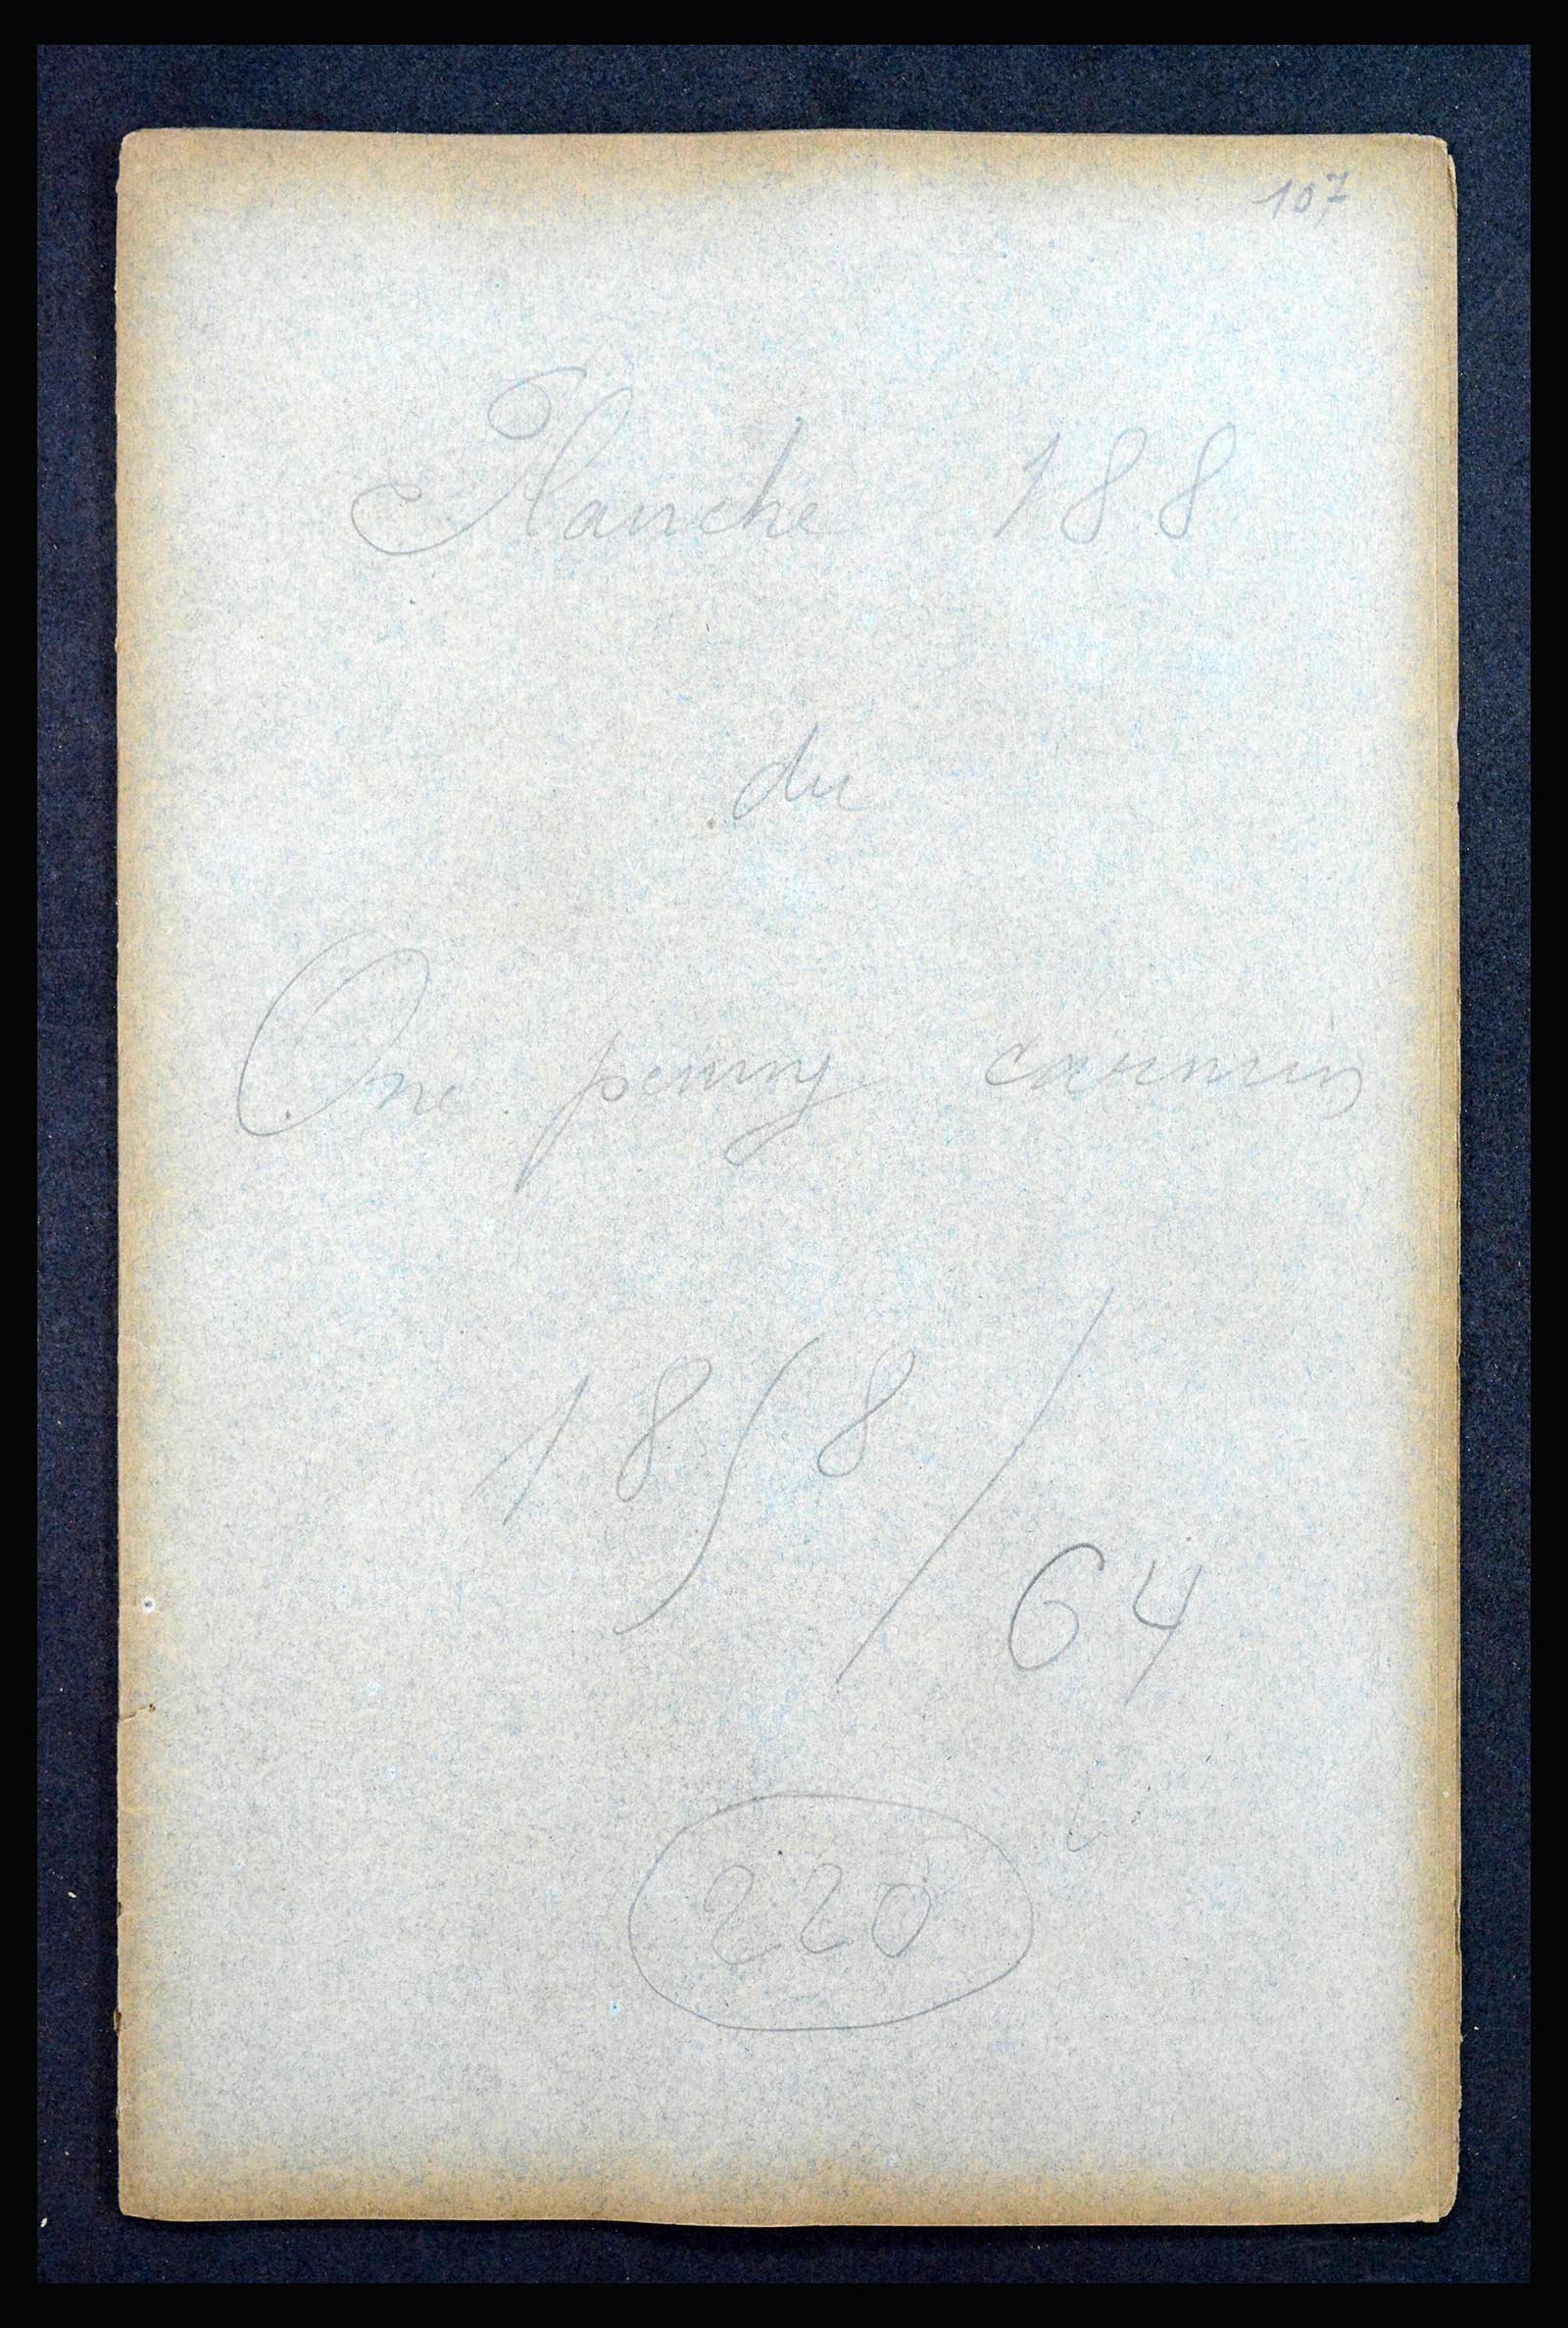 107
Planche 188
du
One penny carmin
1858/64
220